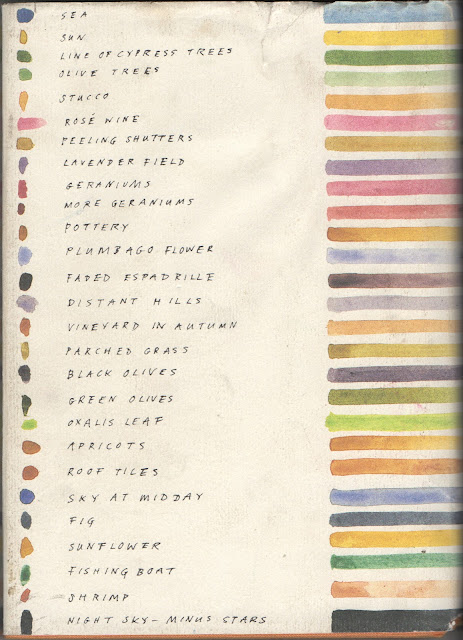 SEA
SUN
LINE OF CYPRESS TREES
OLIVE TREES
STUCCO
ROSÉ WINE
PEELING SHUTTERS
LAVENDER FIELD
GERANIUMS
MORE GERANIUMS
POTTERY
PLUMBAGO FLOWER
FADED ESPADRILLE
DISTANT HILLS
VINEYARD IN AUTUMN
PARCHED GRASS
BLACK OLIVES
GREEN OLIVES
OXALIS LEAF
APRICOTS
ROOF TILES
SKY AT MIDDAY
FIG
SUNFLOWER
FISHING BOAT
SHRIMP
NIGHT SKY – MINUS STARS